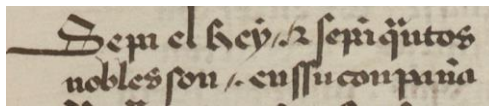 Sepa el Rey / ⁊ sepã q̃ntos
nobles son / en ssu conpaña